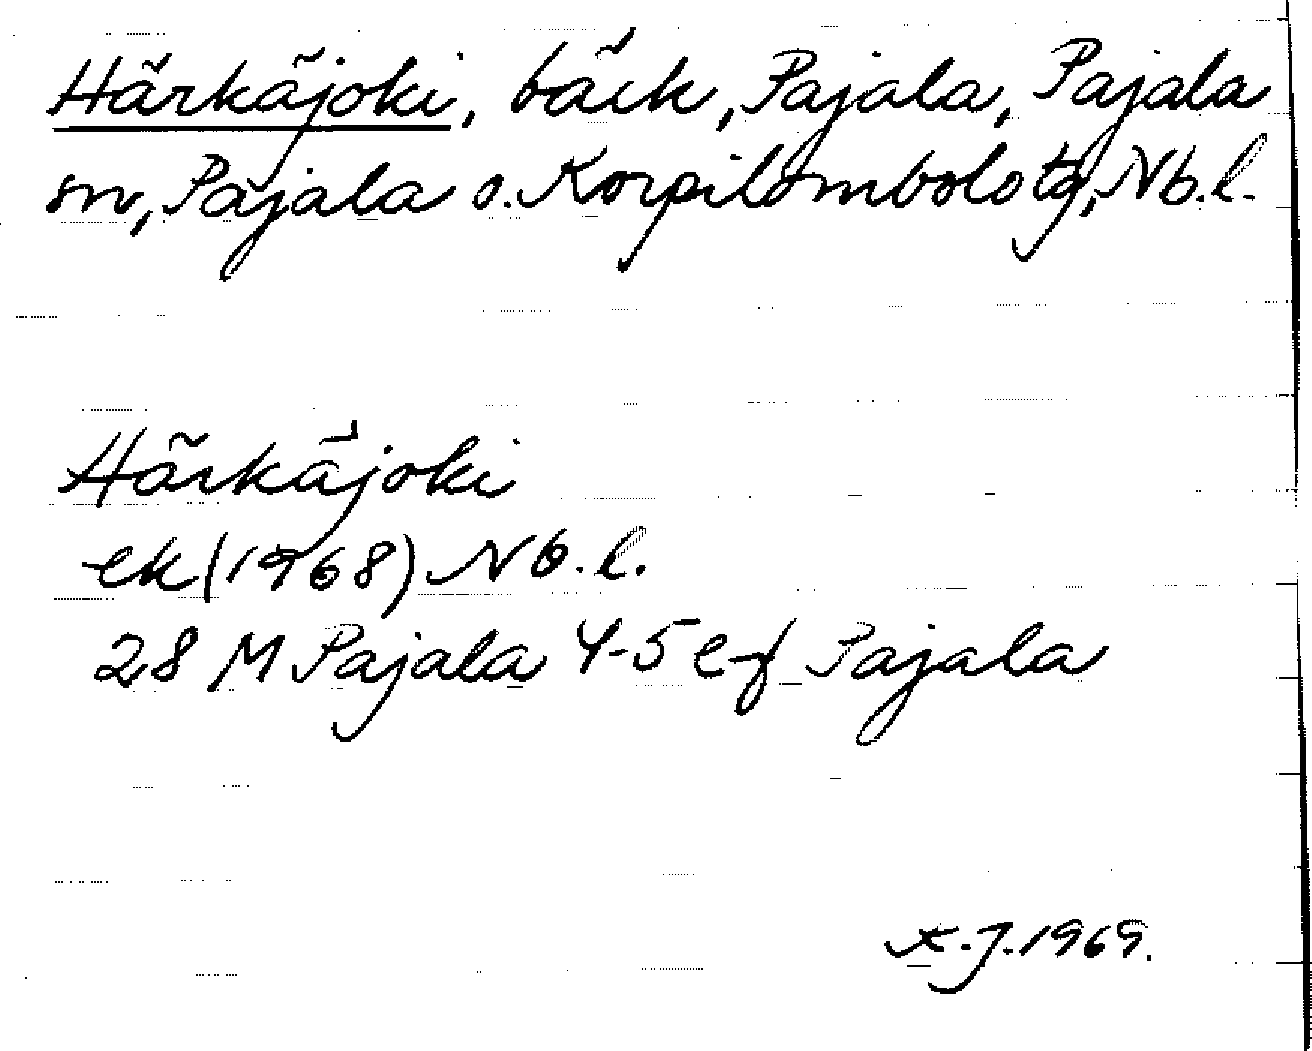 Härkäjoki, bäck, Pajala, Pajala
sn, Pajala o. Korpilombolo tg, Nb.l.
Härkäjoki
ek (1968) Nb.l.
28 M Pajala 4-5 e-f Pajala
K.J. 1969.